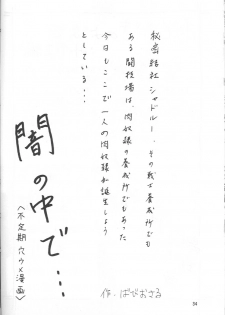 秘密結社シャドルー、その戦士養成所でも
ある闘技場は、肉奴隷の養成所でもあった
今日もここで一人の肉奴隷が誕生しよう
としている・・・
闇の中で・・・
〈不定期穴ウメ漫画〉
作・ばびおさる
34